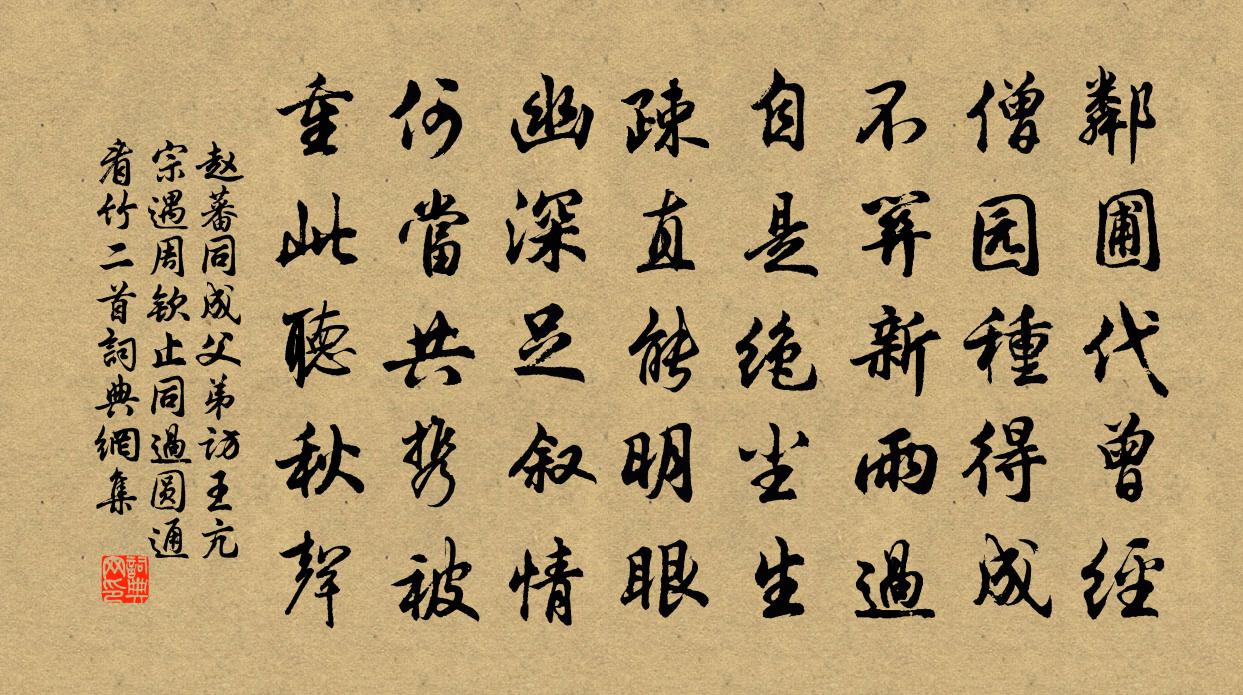 鄰圃代曾經
僧园種得成
不新雨過
自是绝尘生
疎直能明眼
幽深足叙情
何當共携被
重此聽秋聲
赵蕃同成父弟訪王亢
宗遇周欽止同過圓通
看竹二首詞典網集
詞典
网印